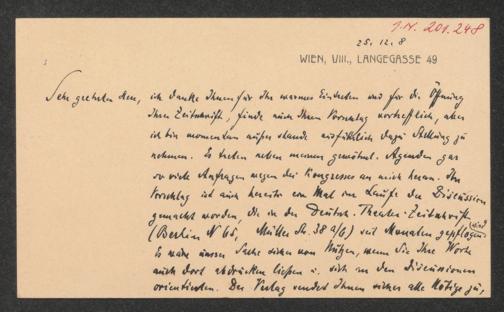 I.N. 201.248
25. 12. 8
WIEN, VIII., LANGEGASSE 49
Sehr geehrter Herr, ich danke Ihnen für Ihr warmes Eintreten und für die Öffnung
Ihrer Zeitschrift, finde auch Ihren Vorschlag vortrefflich, aber
ich bin momentan außer stande ausführlich dazu Stellung zu
nehmen. Es treten neben meinen Agenden gar
so viele Anfragen wegen des Kongresses an mich heran. Ihr
Vorschlag ist auch bereits ein Mal im Laufe der Discussion
gemacht worden, die in der Deutsch. Theater-Zeitschrift
(Berlin N 65, Müller Str. 38 a/b) seit Monaten gepflogen wird
Es wäre unsrer Sache sicher von Nützen, wenn Sie Ihre Worte
auch dort abdrücken ließen u. sich an den Discussionen
orientierten. Der Verlag sendet Ihnen sicher alle Nötige zu,